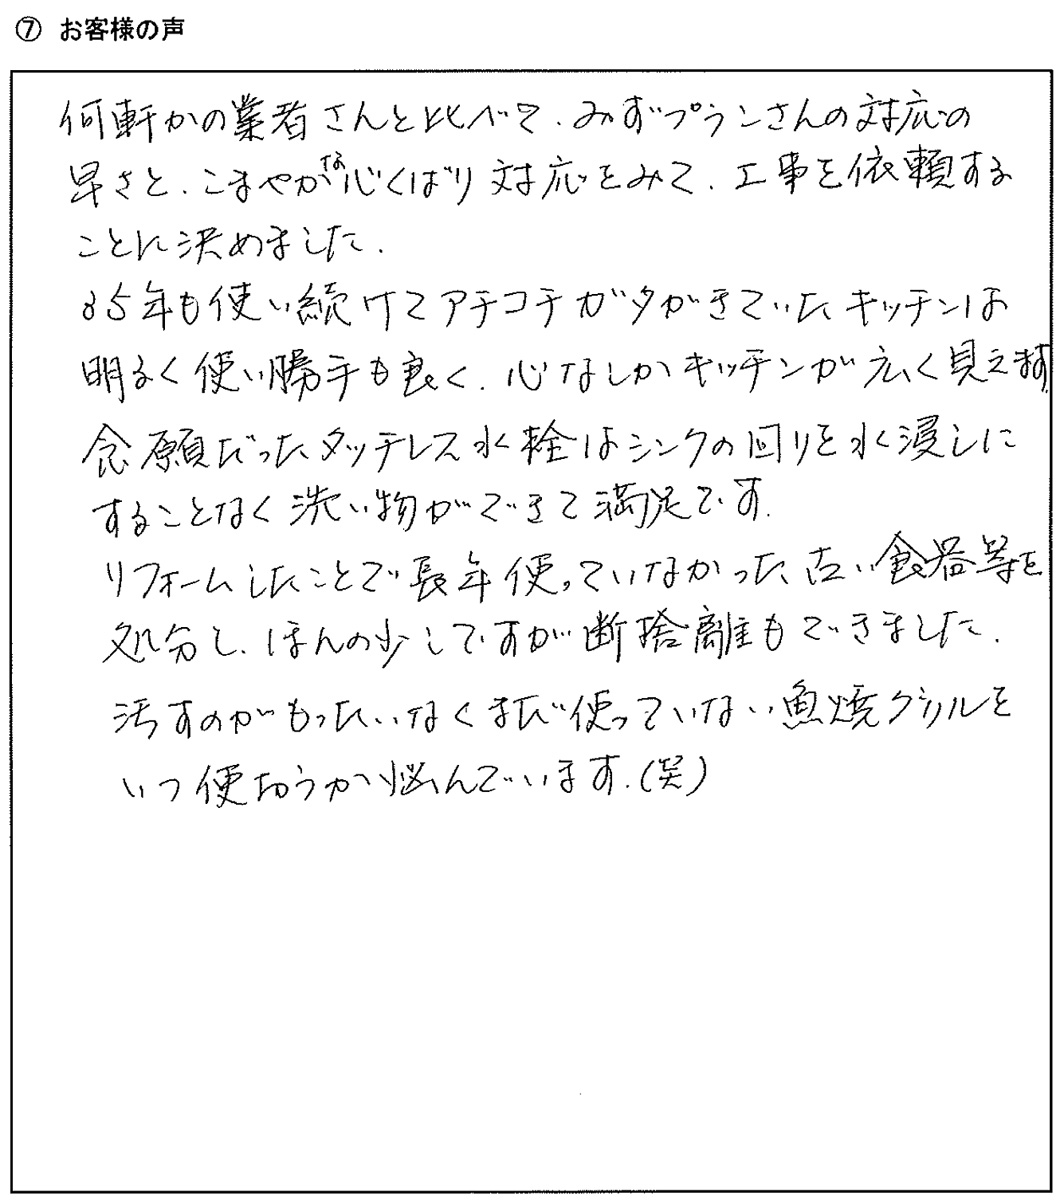 ⑦ お客様の声
何軒かの業者さんと比べて、みずプランさんの対応の
早さと、こまやかな心くばり対応をみて、工事を依頼する
ことに決めました。
35年も使い続けてアチコチガタがきていたキッチンは
明るく使い勝手も良く、心なしかキッチンが広く見えます。
念願だったタッチレス水栓はシンクの回りを水浸しに
することなく洗い物ができて満足です。
リフォームしたことで長年使っていなかった古い食器等を
処分し、ほんの少しですが断捨離もできました。
汚すのがもったいなくまだ使っていない魚焼グリルを
いつ使おうか悩んでいます。(笑)